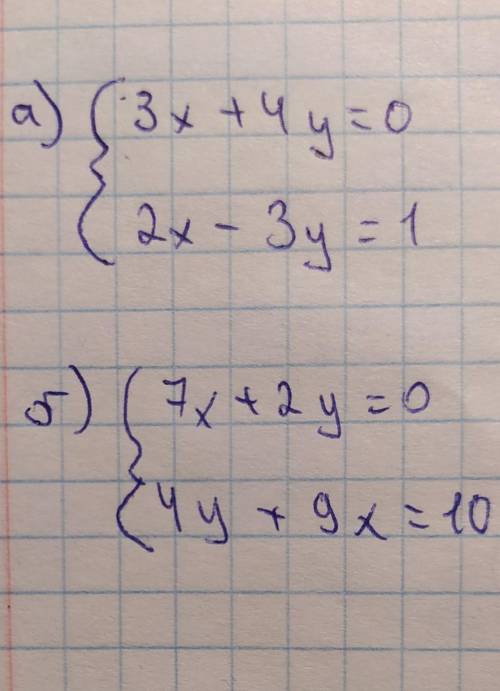 а) { 3x + 4y = 0
2x - 3y = 1
б) { 7x + 2y = 0
4y + 9x = 10